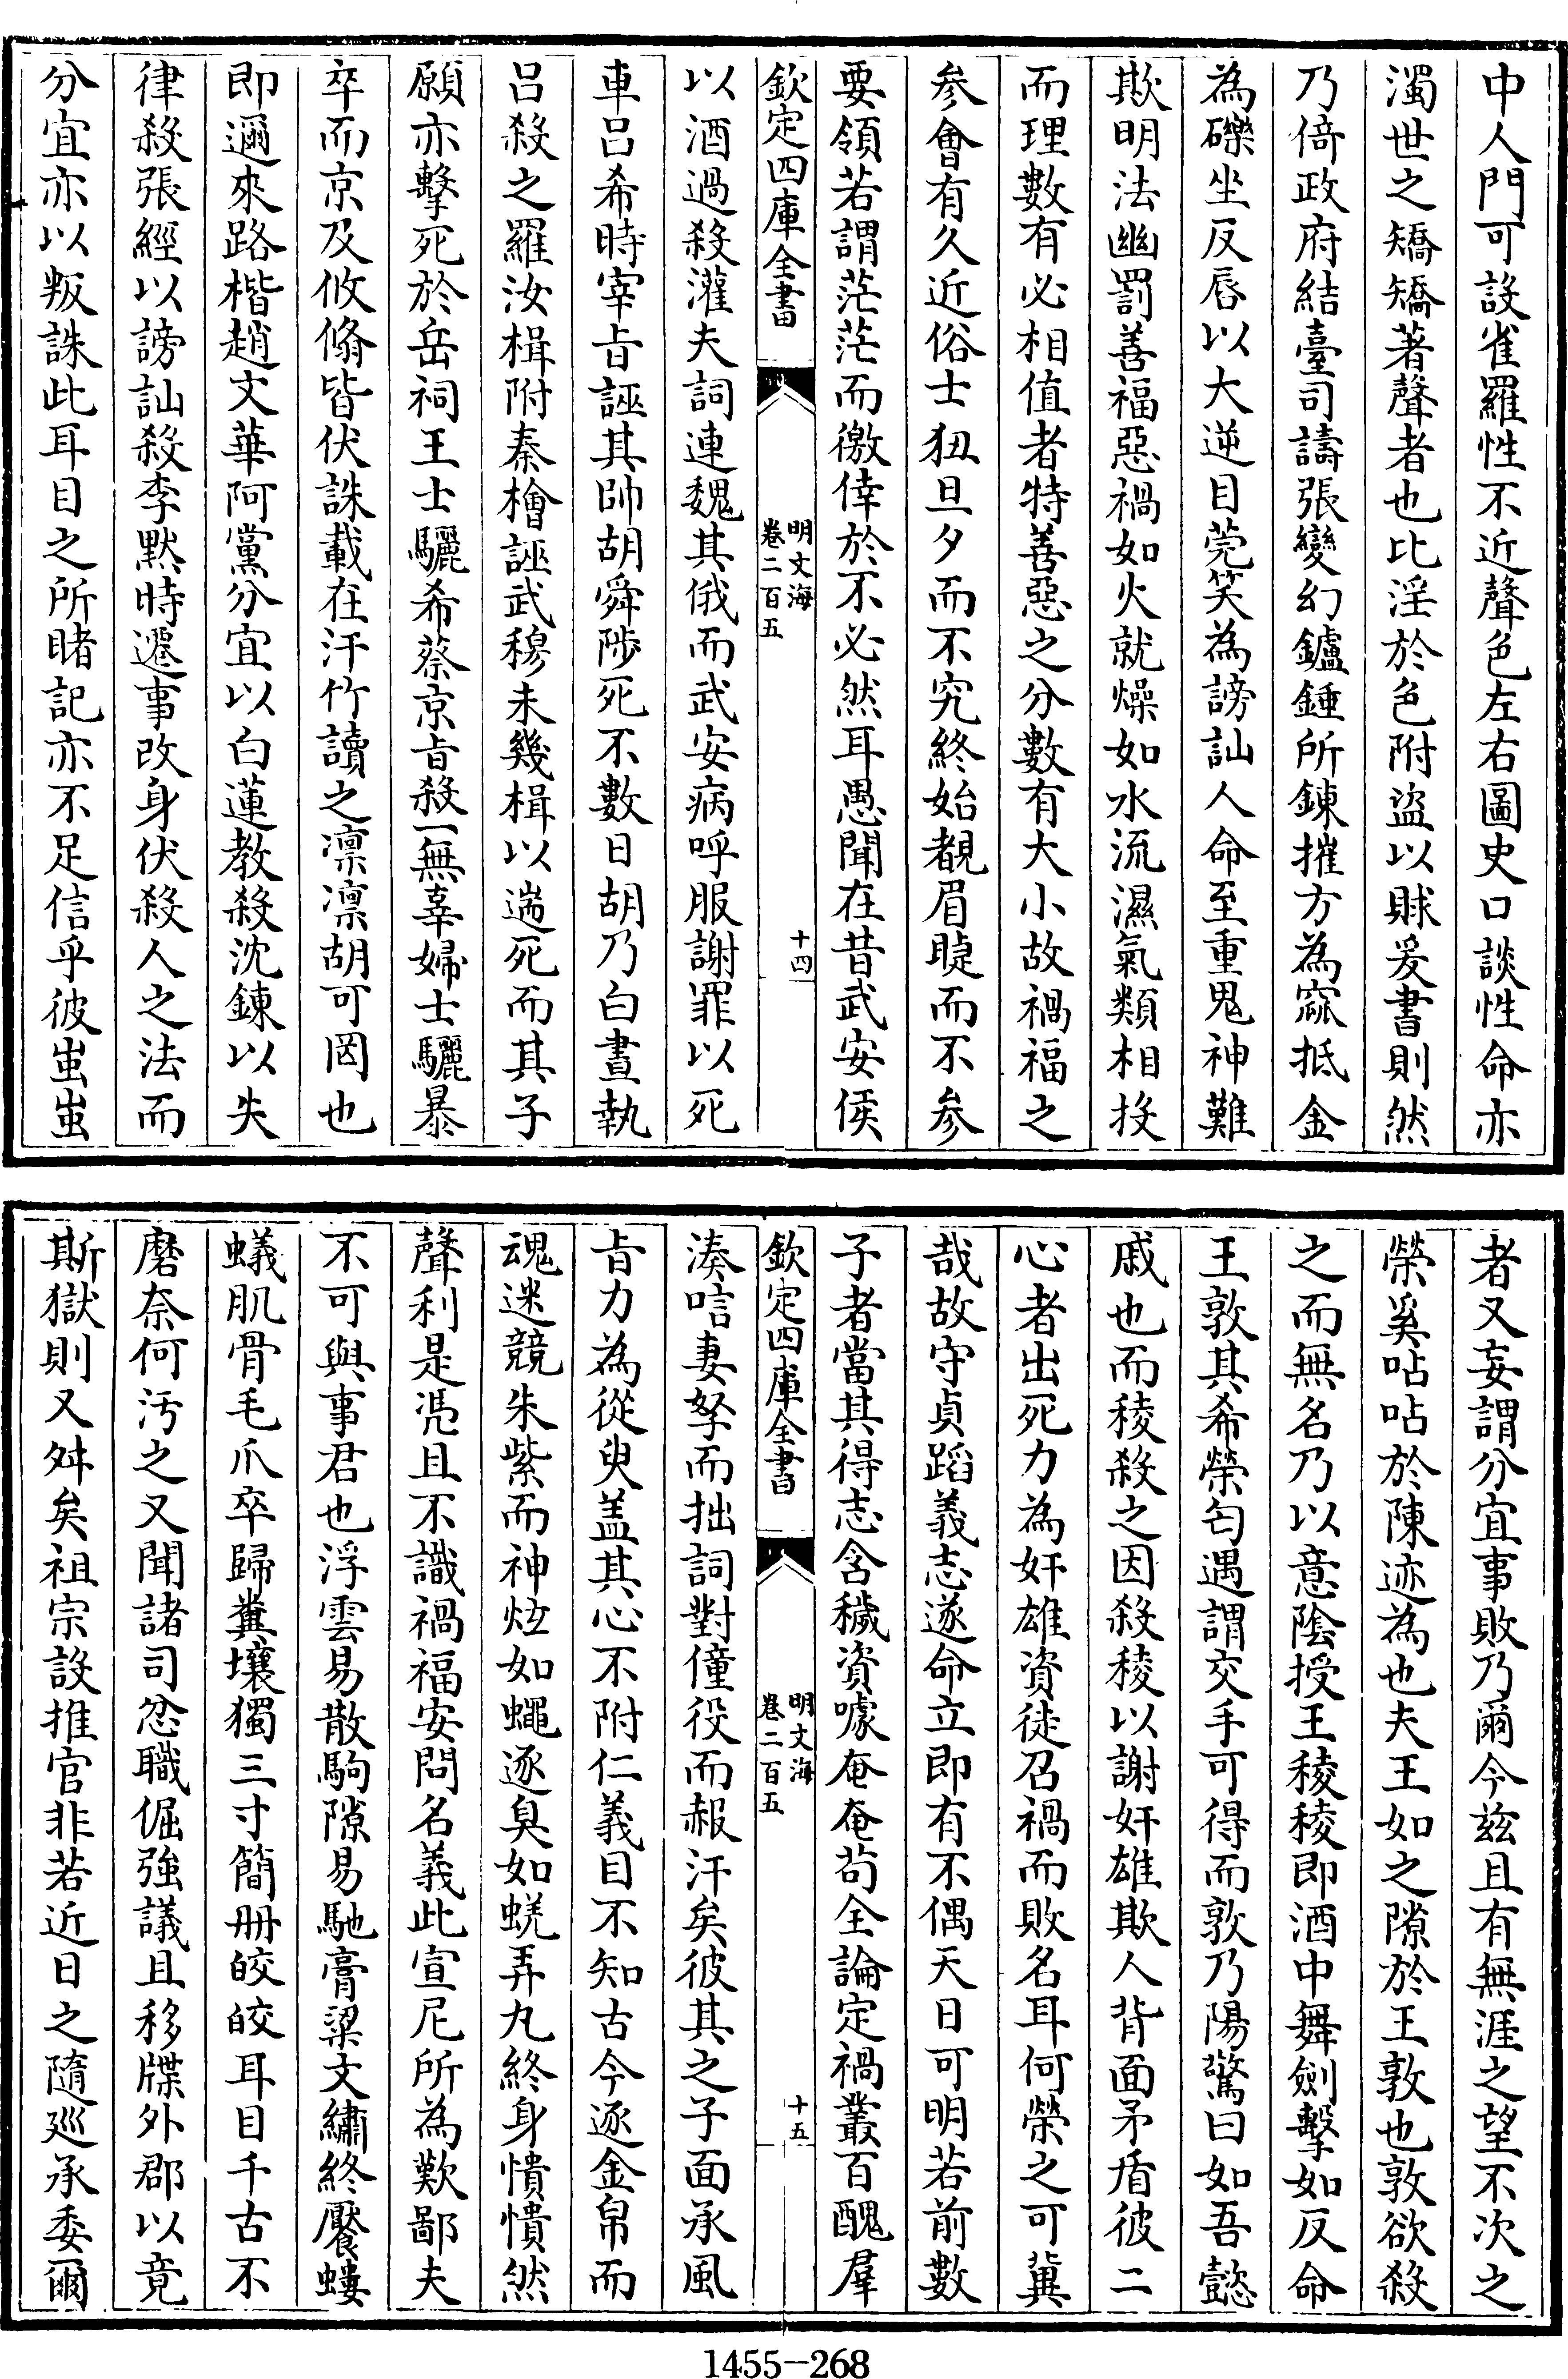 中人門可設雀羅性不近聲色左右圖史口談性命亦
濁世之矯矯著聲者也比淫於色附盜以賕爰書則然
乃倚政府結臺司譸張變幻鑪錘所鍊摧方為窳抵金
為礫坐反唇以大逆目莞笑為謗訕人命至重鬼神難
欺明法幽罰善福惡禍如火就燥如水流濕氣類相投
而理數有必相值者特善惡之分數有大小故禍福之
參會有久近俗士狃旦夕而不究終始覩眉睫而不參
要領若謂茫茫而徼倖於不必然耳愚聞在昔武安侯
欽定四庫全書
明文海
卷二百五
十四
以酒過殺灌夫詞連魏其俄而武安病呼服謝罪以死
車呂希時宰旨誣其帥胡舜陟死不數日胡乃白晝執
呂殺之羅汝楫附秦檜誣武穆未幾楫以遄死而其子
願亦擊死於岳祠王士驪希蔡京旨殺一無辜婦士驪暴
卒而京及攸翛皆伏誅載在汗竹讀之凛凛胡可罔也
即邇來路楷趙文華阿黨分宜以白蓮教殺沈鍊以失
律殺張經以謗訕殺李默時遷事改身伏殺人之法而
分宜亦以叛誅此耳目之所睹記亦不足信乎彼蚩蚩
者又妄謂分宜事敗乃爾今兹且有無涯之望不次之
榮奚呫呫於陳迹為也夫王如之隙於王敦也敦欲殺
之而無名乃以意陰授王稜稜即酒中舞劍擊如反命
王敦其希榮匄遇謂交手可得而敦乃陽驚曰如吾懿
戚也而稜殺之因殺稜以謝奸雄欺人背面矛盾彼二
心者出死力為奸雄資徒召禍而敗名耳何榮之可冀
哉故守貞蹈義志遂命立即有不偶天日可明若前數
子者當其得志含穢資噱奄奄苟全論定禍叢百醜羣
欽定四庫全書
明文海
卷二百五
十五
湊唁妻孥而拙詞對僮役而赧汗矣彼其之子面承風
旨力為從臾盖其心不附仁義目不知古今逐金帛而
魂迷競朱紫而神炫如蠅逐臭如蜣弄丸終身憒憒然
聲利是憑且不識禍福安問名義此宣尼所為歎鄙夫
不可與事君也浮雲易散駒隙易馳膏粱文繡終饜螻
蟻肌骨毛爪卒歸糞壤獨三寸簡冊皎皎耳目千古不
磨奈何汚之又聞諸司忿職倔強議且移牒外郡以竟
斯獄則又舛矣祖宗設推官非若近日之隨廵承委爾
1455—268